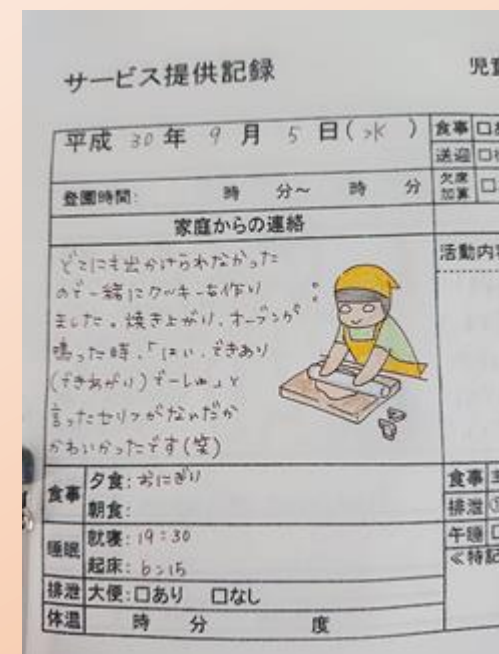 サービス提供記録
平成 30 年 9 月 5 日(水)
食事
送迎
登園時間: 時 分～ 時 分
欠席加算
家庭からの連絡
活動内
どこにも出かけられなかった
ので一緒にクッキーを作り
ました。焼き上がり、オーブンが
鳴った時、「はい、できあり
(できあがり)でーしゅ」と
言ったセリフがなんだか
かわいかったです(笑)
食事
夕食: おにぎり
朝食:
睡眠
就寝: 19:30
起床: 6:15
排泄 大便: □あり □なし
体温 時 分 度
食事
排泄
午睡
≪特記